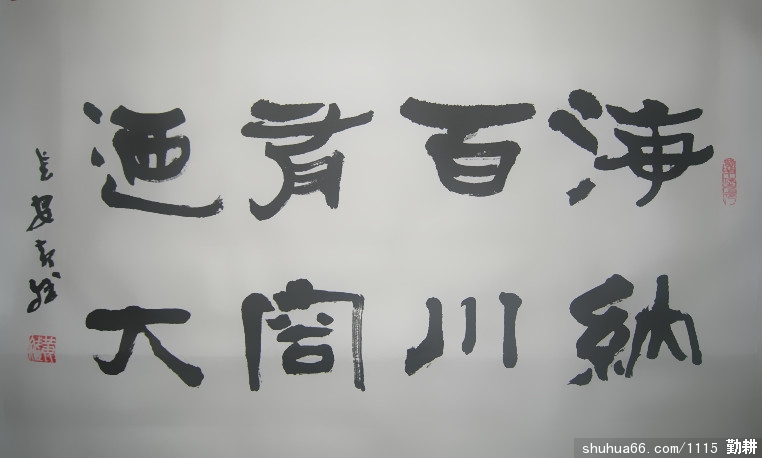 海納
百川
有容
迺大
shuhua66.com/1115 勤耕